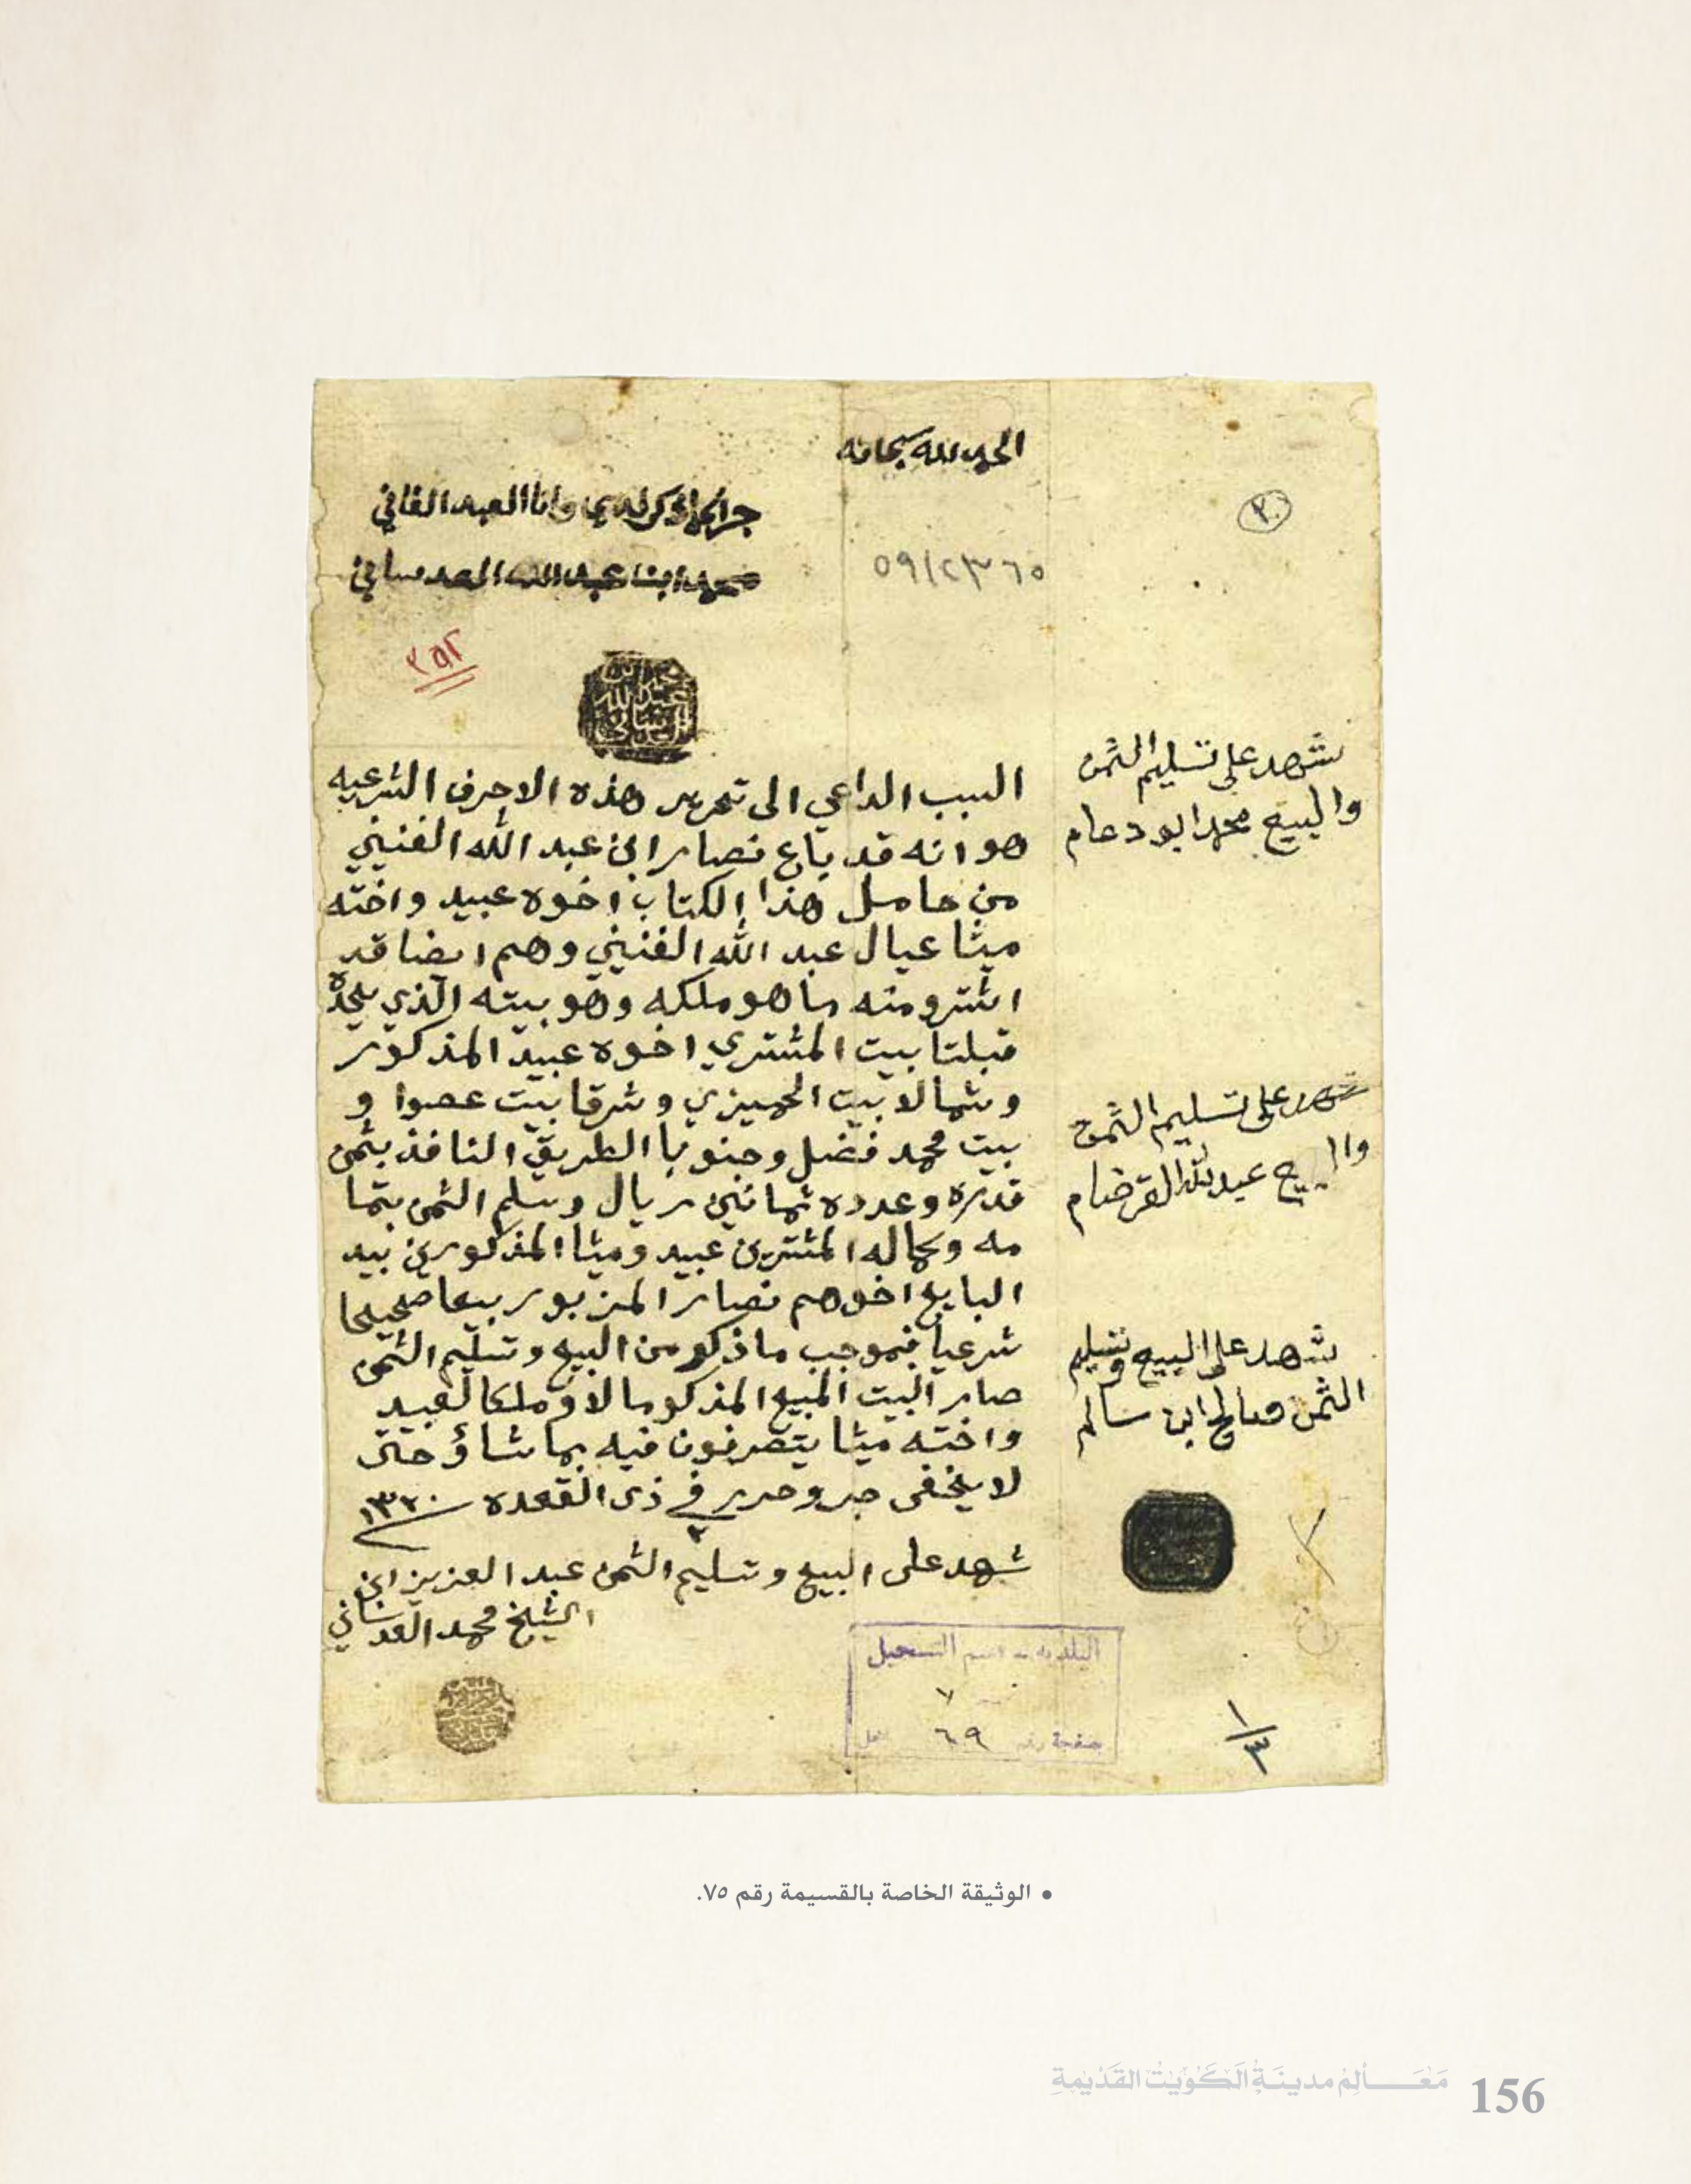 الحمد لله سبحانه
جرا كما ذكر لدي وانا العبد الفاني
محمد ابن عبد الله العدساني
٣٠
٥٩/٢٣٦٥
٣٥٢
محمد ابن عبد الله العدساني
السبب الداعي الى تحرير هذه الاحرف الشرعيه
هو انه قد باع نصار ابن عبد الله الفنيني
من حامل هذا الكتاب اخوه عبيد واخته
ميثا عيال عبد الله الفنيني وهم ايضا قد
اشترو منه ما هو ملكه وهو بيته الذي يحده
قبلتا بيت المشتري اخوه عبيد المذكور
وشمالا بيت الحميزي وشرقا بيت عصوا و
بيت محمد فضل وجنوبا الطريق النافذ بثمن
قدره وعدده ثمانين ريال وسلم الثمن بتما
مه وكماله المشترين عبيد وميثا المذكورين بيد
البايع اخوهم نصار المزبور بيعا صحيحا
شرعيا فبموجب ما ذكر من البيع وتسليم الثمن
صار البيت المبيع المذكور مالا وملكا لعبيد
واخته ميثا يتصرفون فيه بما شاؤ حتى
لا يخفى جر وحرر في ٢ ذي القعده ١٣٣٠
شهد على البيع وتسليم الثمن عبد العزيز ابن
الشيخ محمد العدساني
شهد على تسليم الثمن
والبيع محمد ابو دعام
شهد على تسليم الثمن
والبيع عبد الله القرضام
شهد على البيع وتسليم
الثمن صالح ابن سالم
البلدية - قسم التسجيل
٧
صفحة رقم ٦٩
١/٣
• الوثيقة الخاصة بالقسيمة رقم ٧٥.
مَعَالِمُ مدينَةِ الكُوَيْت القَدْيمةِ 156